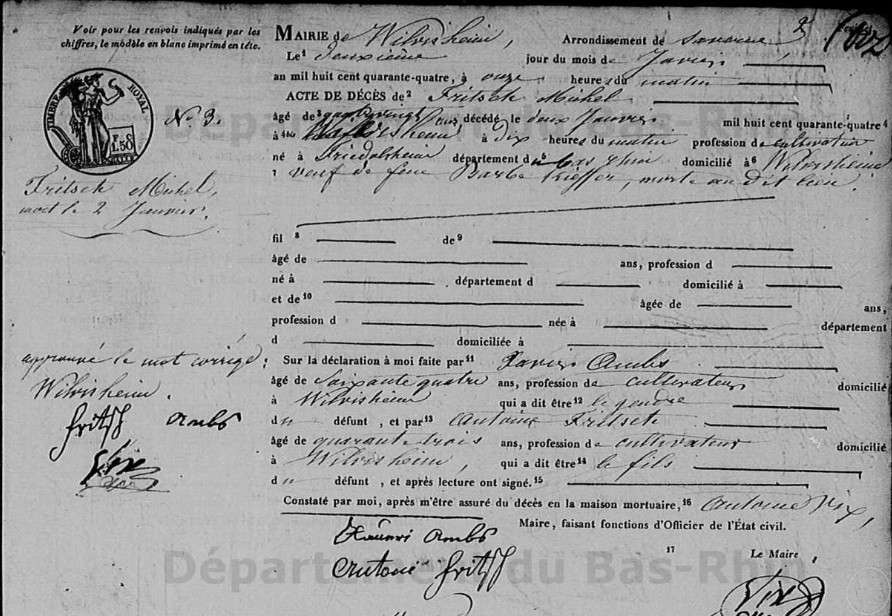 Voir pour les renvois indiqués par les
chiffres, le modèle en blanc imprimé en tête.
MAIRIE de Wilvisheim, Arrondissement de Saverne 2
Le¹ deuxième jour du mois de Janvier
an mil huit cent quarante-quatre, à onze heures du matin
ACTE DE DÉCÈS de² Fritsch Michel
TIMBRE ROYAL
1.50
N.º 3.
âgé de³ ans, décédé le deux Janvier mil huit cent quarante-quatre⁴
à à dix heures du matin profession de cultivateur
né à Friedolsheim département du⁵ bas rhin domicilié à⁶ Wilvisheim
⁷ veuf de feue Barbe Kieffer, morte au dit lieu.
Fritsch Michel,
mort le 2 Janvier.
fil ⁸ de⁹
âgé de ans, profession d
né à département d domicilié à
et de¹⁰ âgée de ans,
profession d née à département
d domiciliée à
approuvé le mot corrigé;
Wilvisheim.
Fritsch Ambs
Vix
Sur la déclaration à moi faite par¹¹ Xavier Ambs
âgé de soixante quatre ans, profession de cultivateur domicilié
à Wilvisheim qui a dit être¹² le gendre
du défunt , et par¹³ Antoine Fritsch
âgé de quarante trois ans, profession de cultivateur domicilié
à Wilvisheim, qui a dit être¹⁴ le fils
du défunt , et après lecture ont signé.¹⁵
Constaté par moi, après m'être assuré du décès en la maison mortuaire,¹⁶ Antoine Vix,
Maire, faisant fonctions d'Officier de l'État civil.
Ambs
Antoine Fritsch
¹⁷ Le Maire
Vix
Département du Bas-Rhin
Département du Bas-Rhin